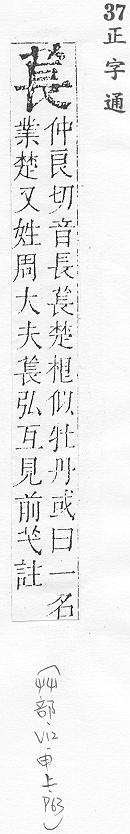 37 正字通
萇
仲良切音長萇楚相似牡丹或曰一名
業楚又姓周大夫萇弘互見前芅註
(艸部, V12, 申上, P63)